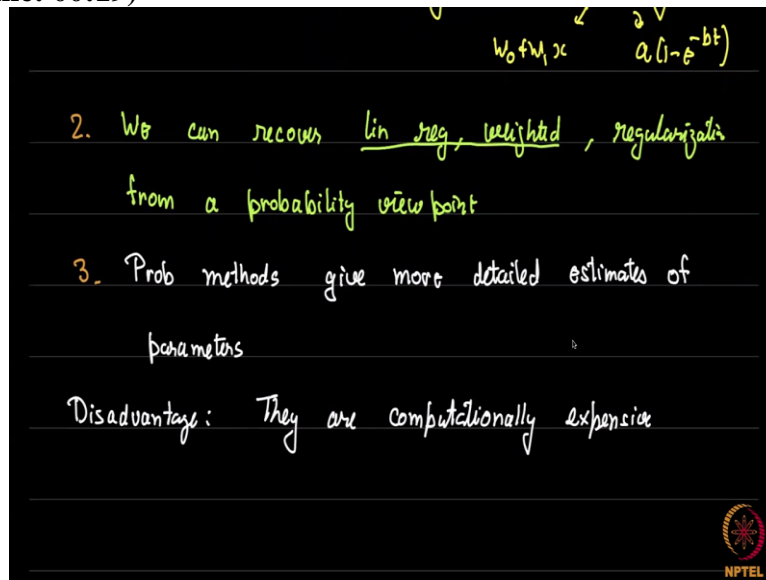 W₀+W₁x a(1-e^{-bt})
2. We can recover lin reg, weighted, regularization
from a probability view point
3. Prob methods give more detailed estimates of
parameters
Disadvantage: They are computationally expensive
NPTEL